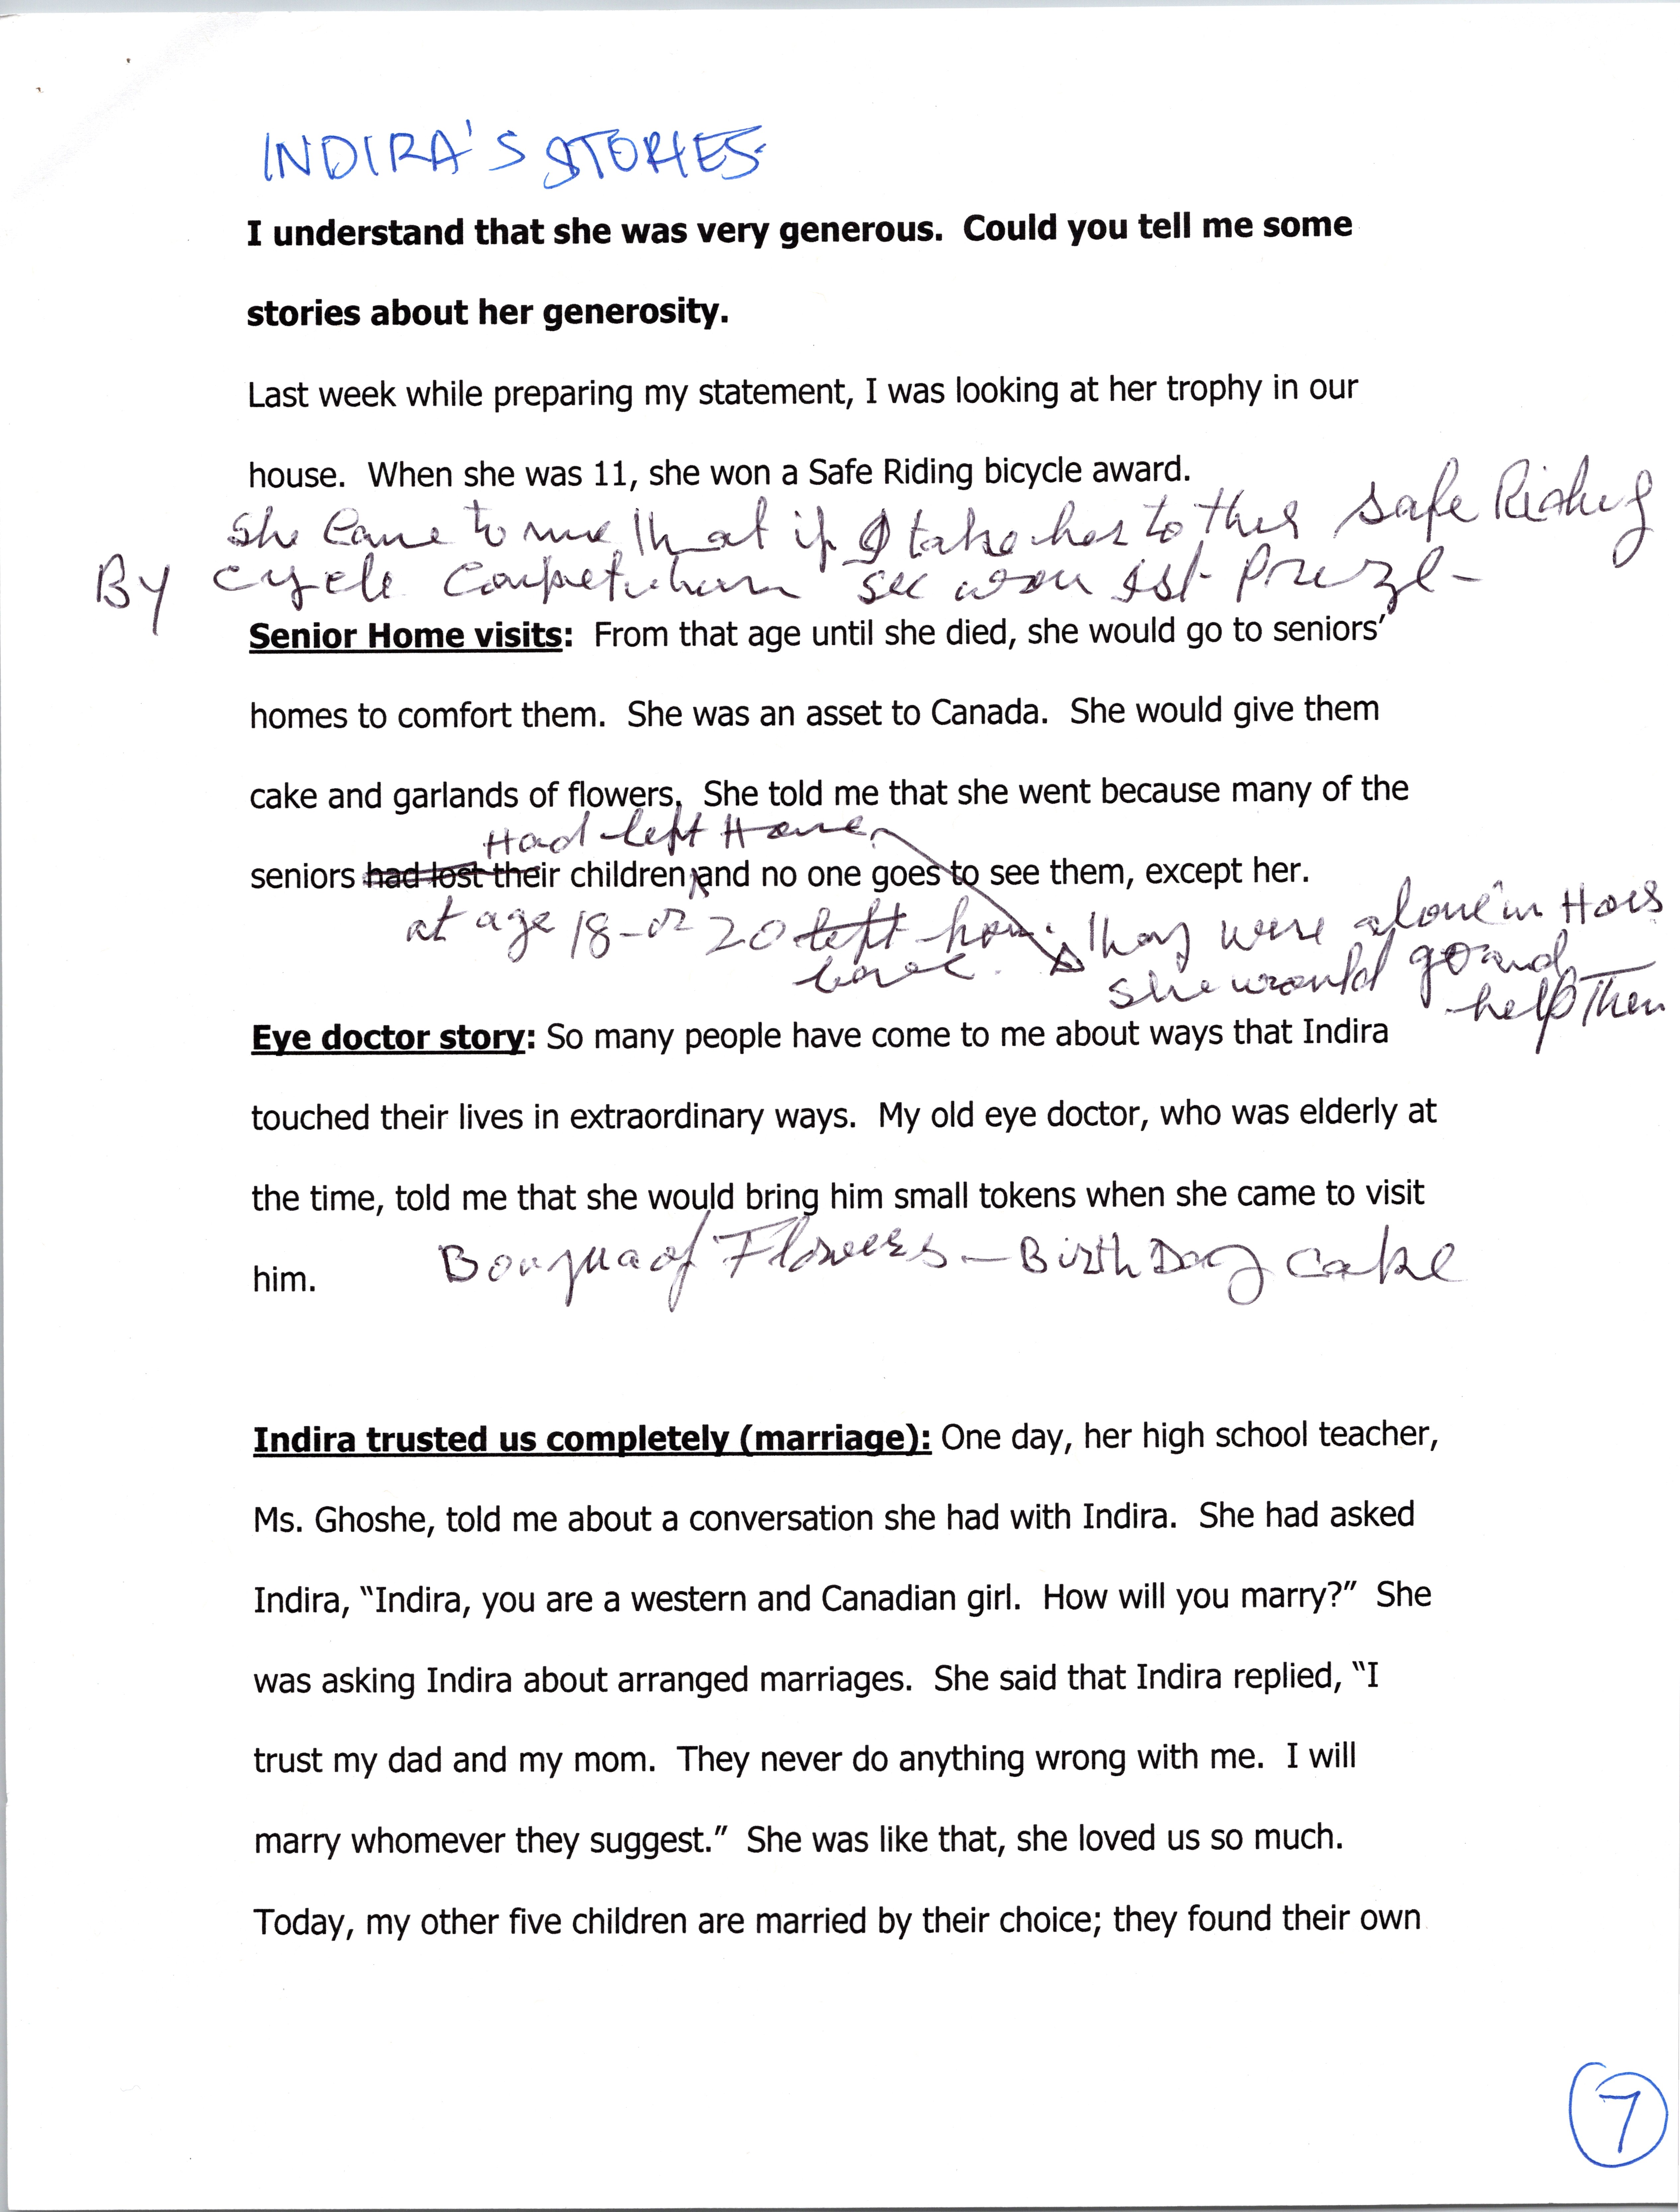 INDIRA'S STORIES
I understand that she was very generous.  Could you tell me some
stories about her generosity.
Last week while preparing my statement, I was looking at her trophy in our
house.  When she was 11, she won a Safe Riding bicycle award.
She came to me that if I take her to this safe Riding
By cycle Competition see won 1st Prize -
Senior Home visits:  From that age until she died, she would go to seniors'
homes to comfort them.  She was an asset to Canada.  She would give them
cake and garlands of flowers.  She told me that she went because many of the
Had left Home
seniors had lost their children and no one goes to see them, except her.
at age 18 - or 20 left home They were alone in
she would go and
help Them
Eye doctor story: So many people have come to me about ways that Indira
touched their lives in extraordinary ways.  My old eye doctor, who was elderly at
the time, told me that she would bring him small tokens when she came to visit
him. Bouqua of Flowers - Birth Day Cake
Indira trusted us completely (marriage): One day, her high school teacher,
Ms. Ghoshe, told me about a conversation she had with Indira.  She had asked
Indira, "Indira, you are a western and Canadian girl.  How will you marry?"  She
was asking Indira about arranged marriages.  She said that Indira replied, "I
trust my dad and my mom.  They never do anything wrong with me.  I will
marry whomever they suggest."  She was like that, she loved us so much.
Today, my other five children are married by their choice; they found their own
7